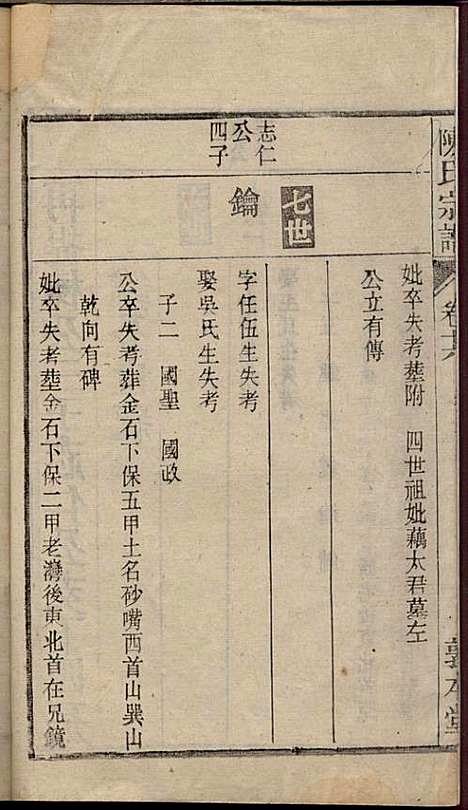 陳氏宗譜
卷十六
敦本堂
妣卒失考塟附 四世祖妣藕太君墓左
公立有傳
七世
志仁
公
四子
鑰
字任伍生失考
娶吳氏生失考
子二 國聖 國政
公卒失考葬金石下保五甲土名砂嘴西首山巽山
乾向有碑
妣卒失考塟金石下保二甲老灣後東北首在兄鏡